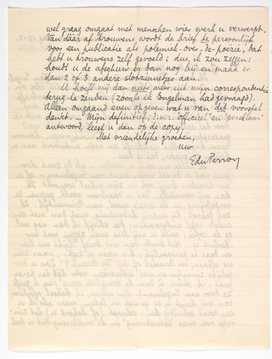 wel graag omgaat met menschen wier werk u verwerpt.
Van daar af trouwens wordt de brief te persoonlijk
voor een publicatie als polemiek-over-de-poëzie, dat
hebt u trouwens zelf gevoeld; dus, ik zou zeggen:
houdt u de afschuw er dan nog bij en maak er
dan 2 of 3 andere slotzinnetjes aan.
U hoeft mij dan niet meer uit mijn correspondentie
terug te zenden (zooals ik Engelman had gevraagd),
alleen omgaand even opgeven wat u van dit voorstel
denkt. — Mijn definitief, d.w.z. "officieel" en
antwoord, leest u dan op de copy.
Met vriendelijke groeten,
uw
EduPerron